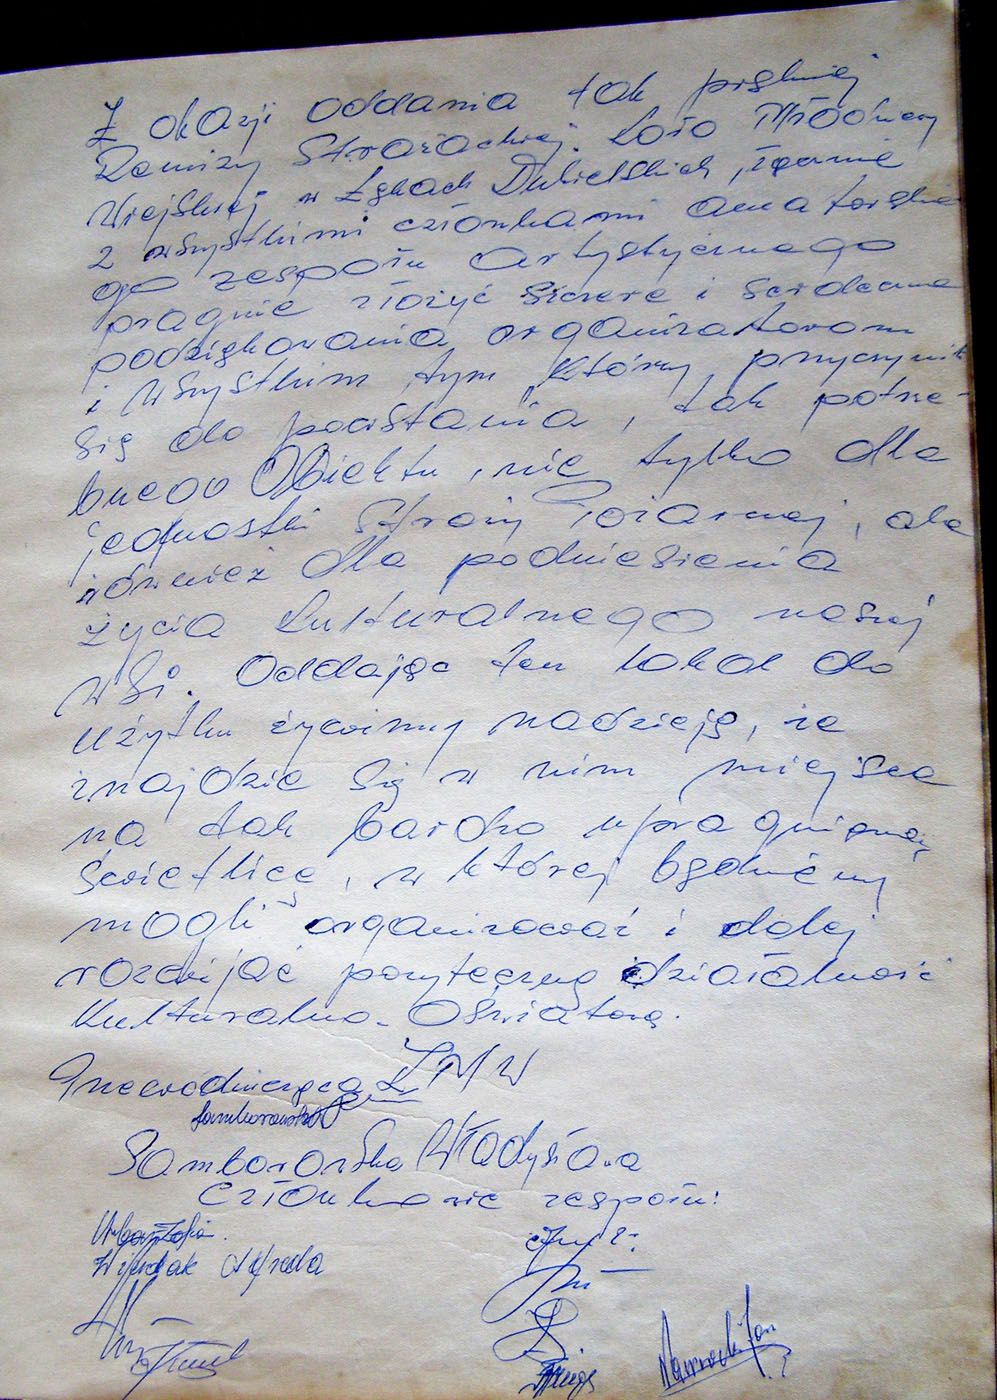 Z okazji oddania tak pięknej
Remizy Strażackiej. Koło Młodzieży
Wiejskiej w Łękach Dukielskich, łącznie
z wszystkimi członkami amatorskie
go zespołu artystycznego
pragnie złożyć szczere i serdeczne
podziękowania organizatorom
i wszystkim tym którzy przyczynili
się do powstania, tak potrze-
bnego Obiektu, nie tylko dla
jednostki Straży Pożarnej, ale
również dla podniesienia
życia kulturalnego naszej
wsi. Oddając ten lokal do
użytku żywimy nadzieję, że
znajdzie się w nim miejsce
na tak bardzo upragnioną
świetlicę, w której będziemy
mogli organizować i dalej
rozwijać pożyteczną działalność
Kulturalno-Oświatową.
Przewodnicząca ZMW
Samborowska
Samborowska Władysława
Członkowie zespołu:
Zofia
Nawrocki Jan